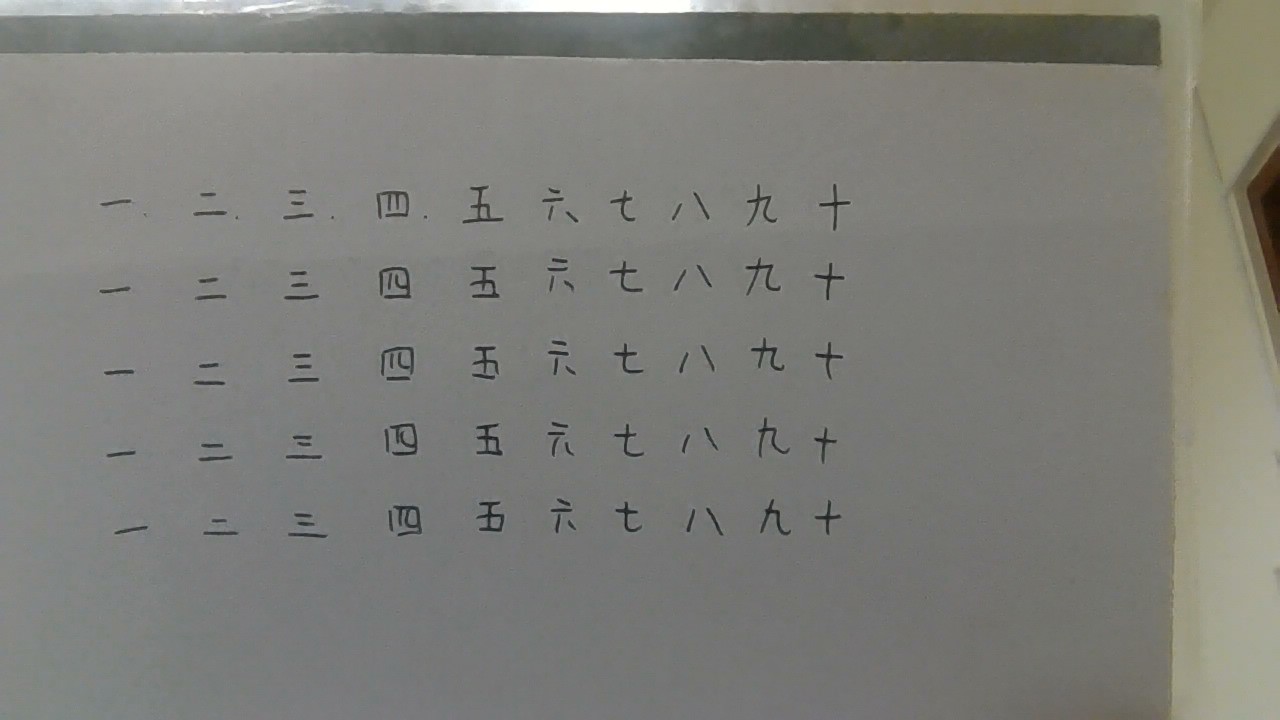 一. 二. 三. 四. 五 六 七 八 九 十
一 二 三 四 五 六 七 八 九 十
一 二 三 四 五 六 七 八 九 十
一 二 三 四 五 六 七 八 九 十
一 二 三 四 五 六 七 八 九 十